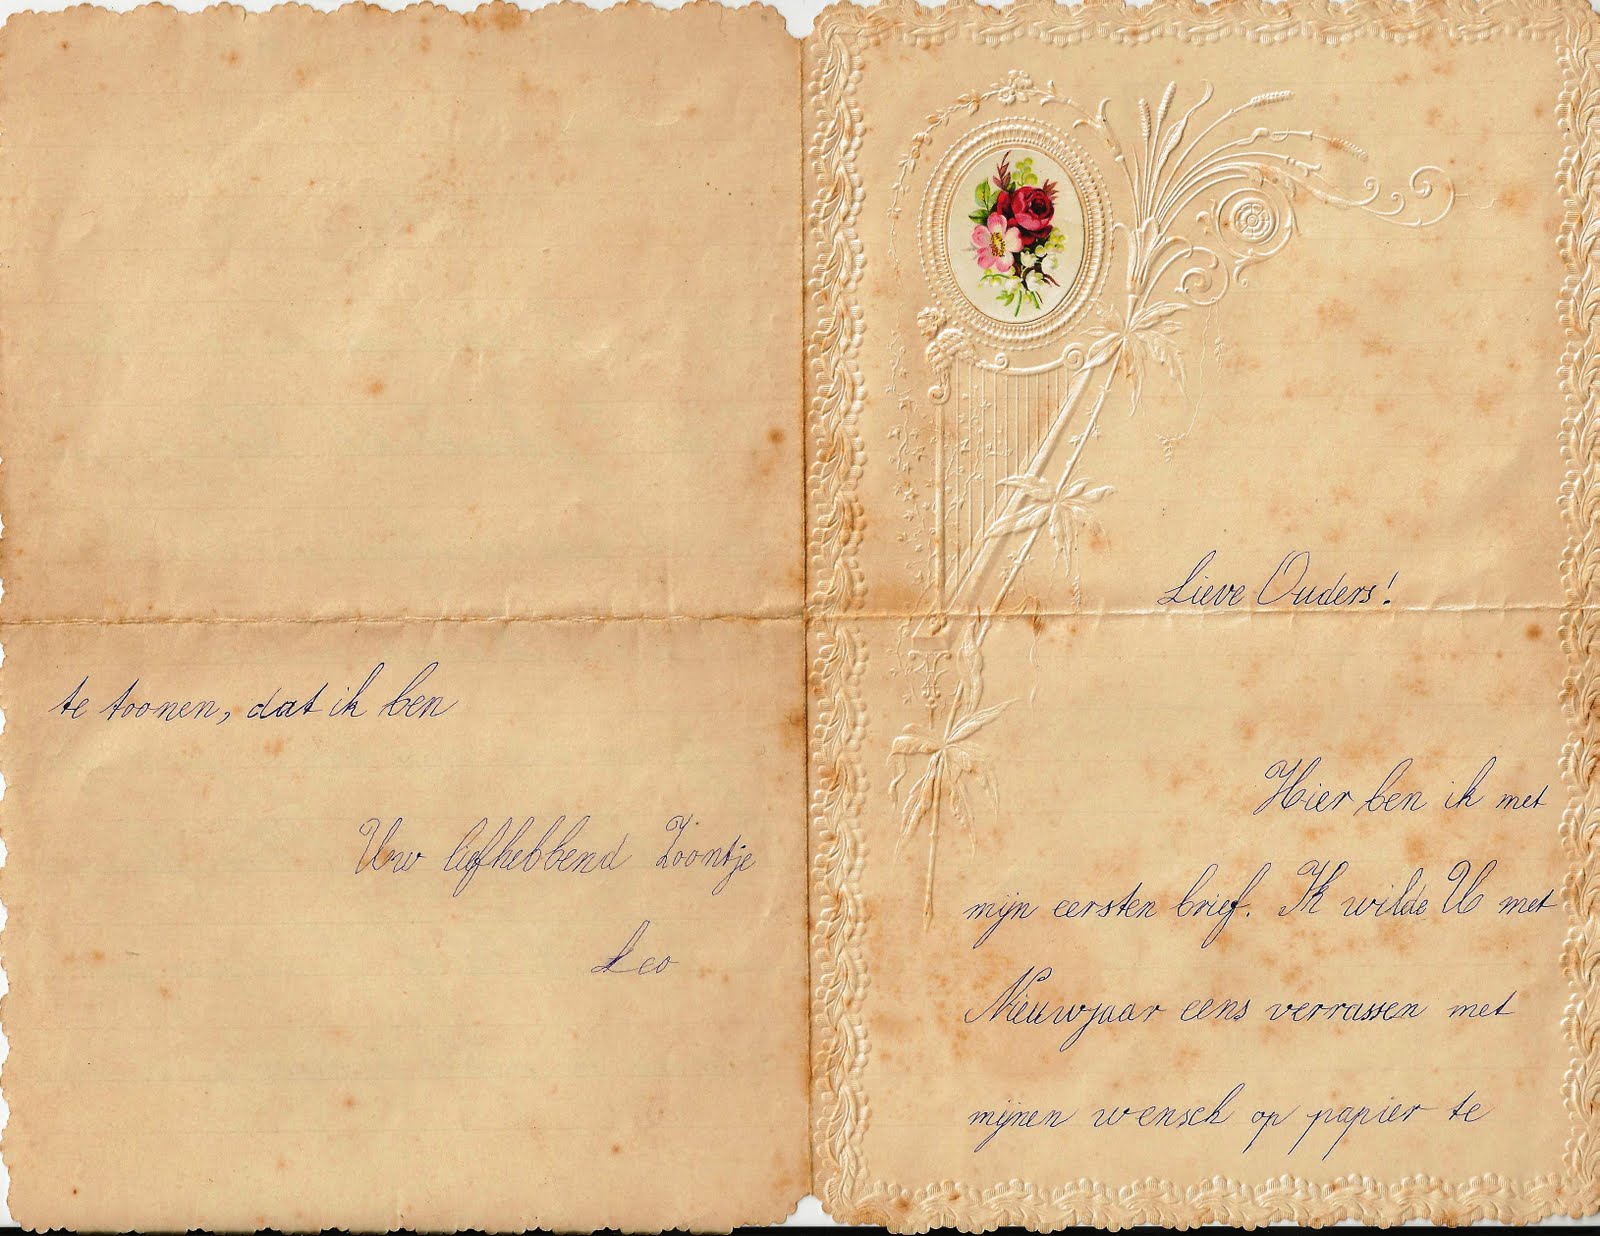 Lieve Ouders!
Hier ben ik met
mijn eersten brief. Ik wilde U met
Nieuwjaar eens verrassen met
mijnen wensch op papier te
te toonen, dat ik ben
Uw liefhebbend Zoontje
Leo